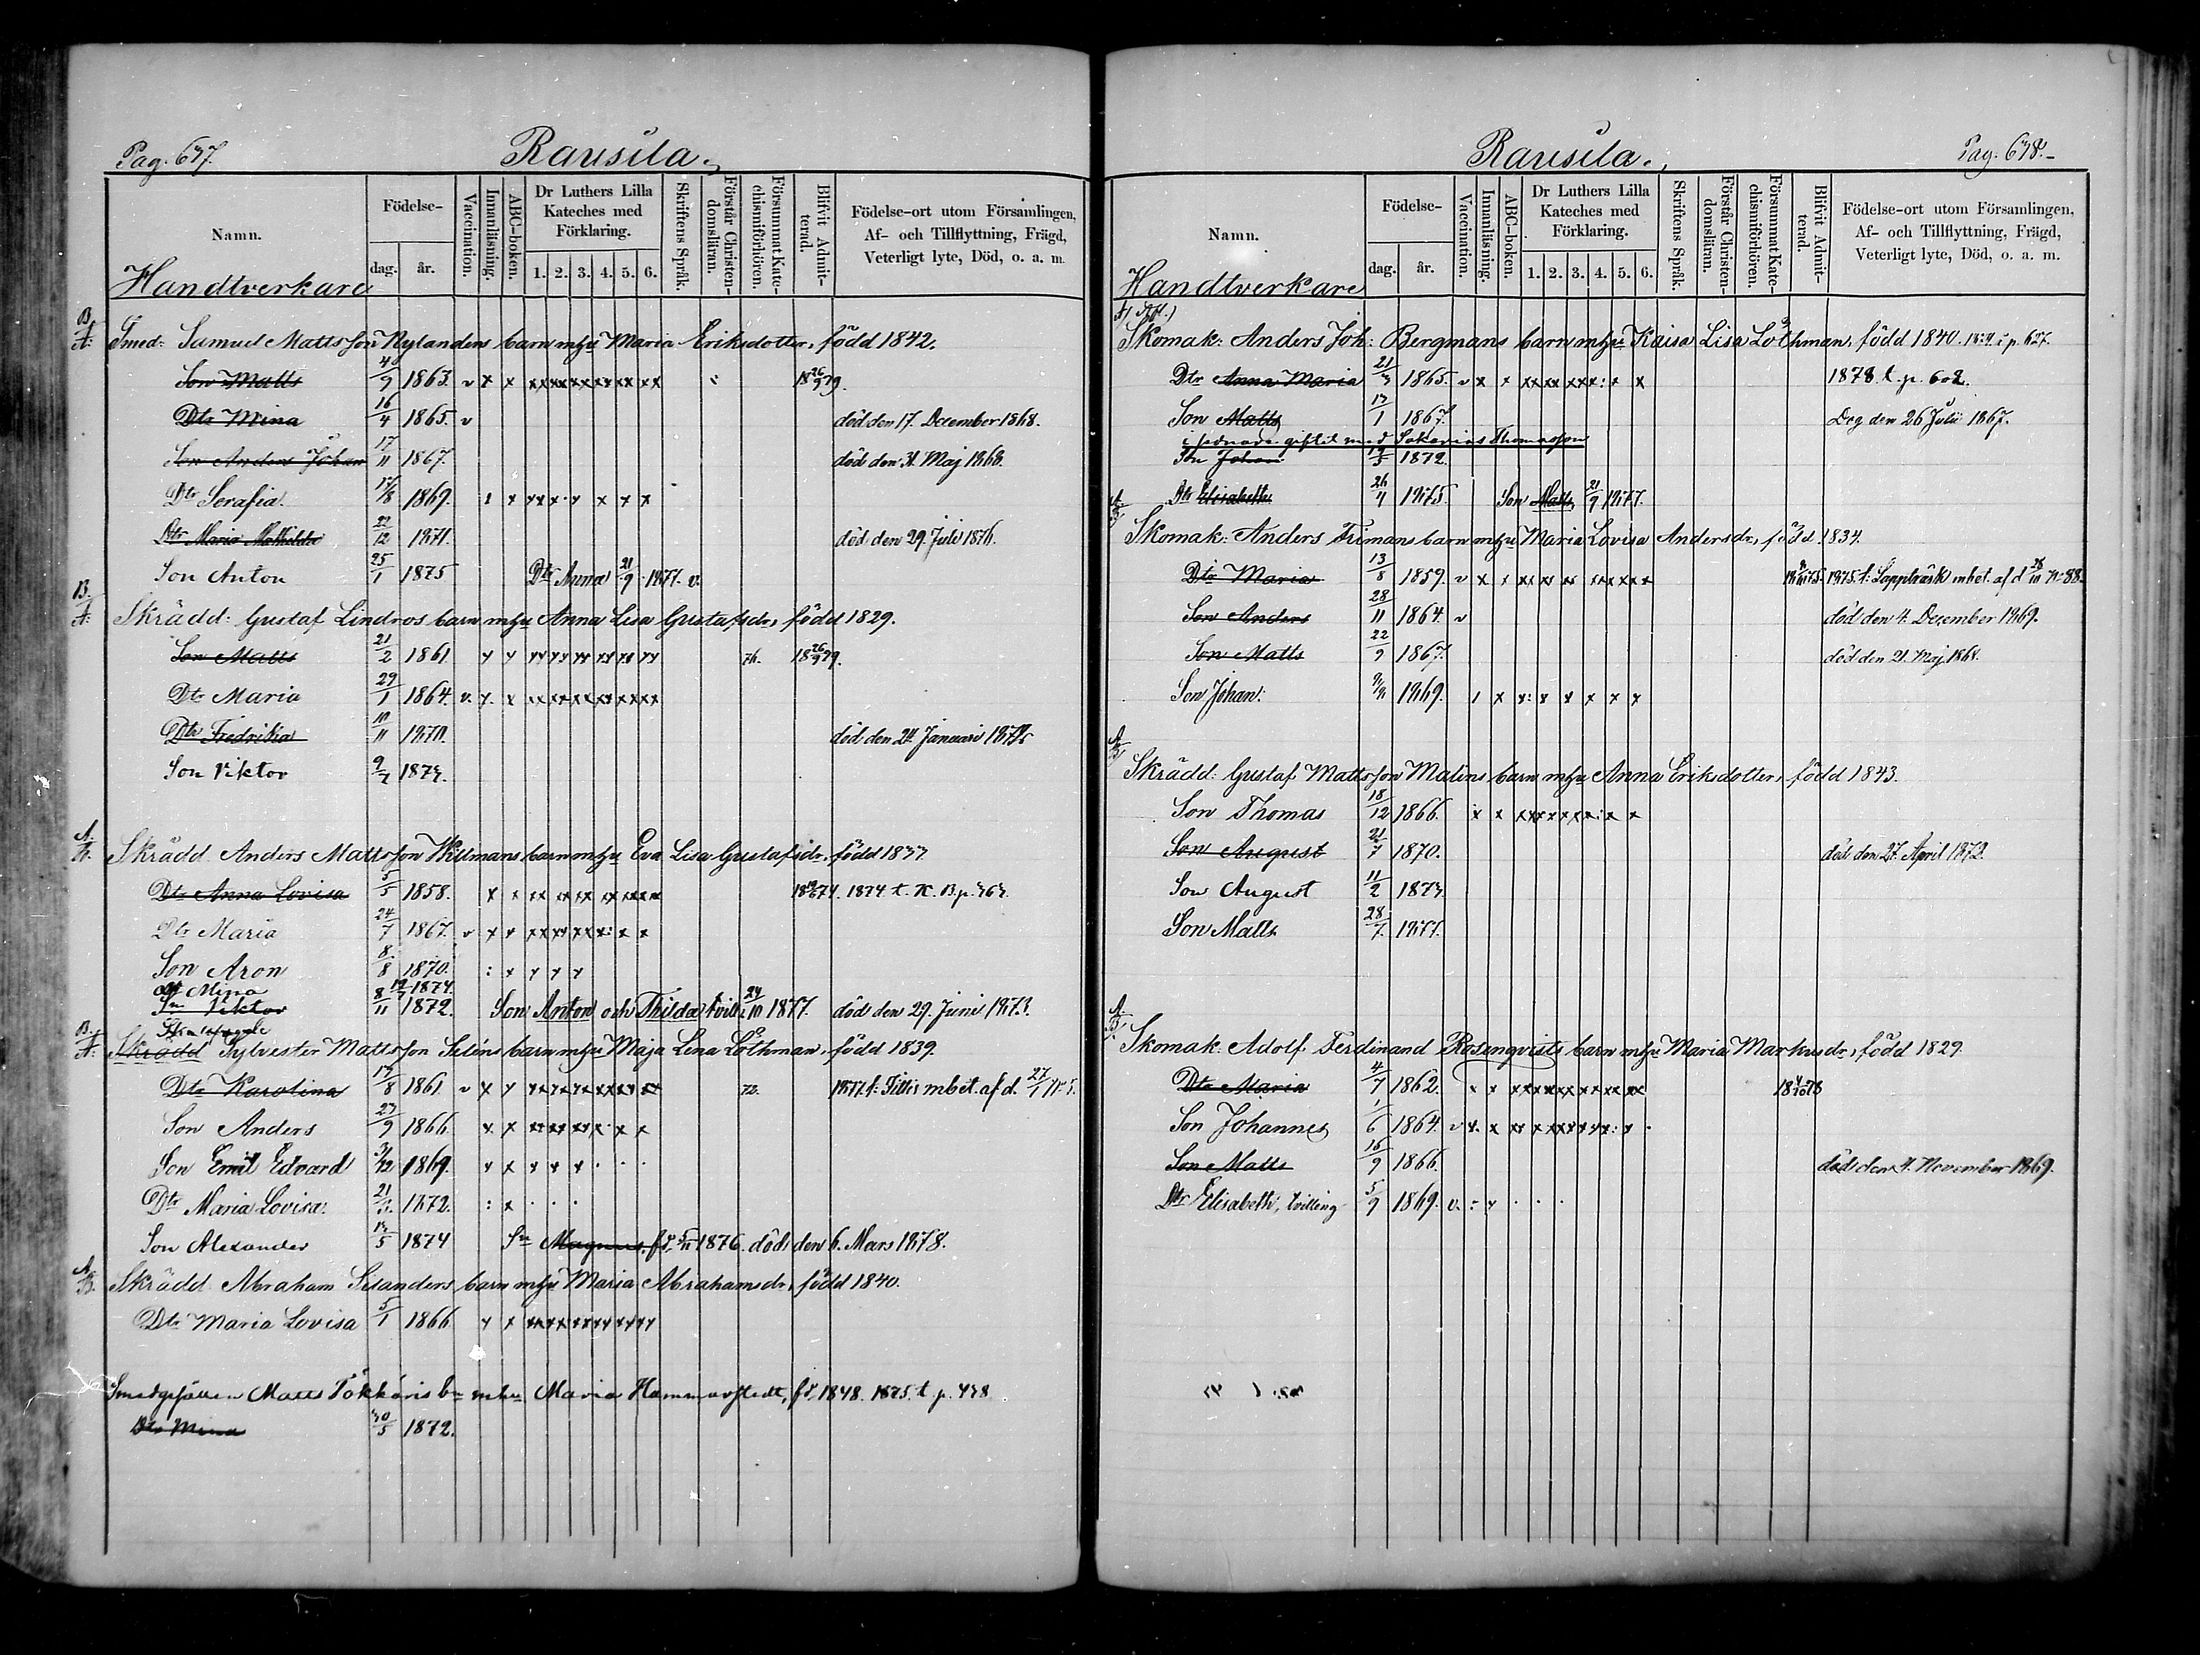 Pag. 637.
Rausila.
Namn.
Födelse-
dag.
år.
Vaccination.
Innanläsning.
ABC-boken.
Dr Luthers Lilla Kateches med Förklaring.
1. 2. 3. 4. 5. 6.
Skriftens Språk.
Förstår Christendomsläran.
Försummat Katechismiförhören.
Blifvit Admitterad.
Födelse-ort utom Församlingen, Af- och Tillflyttning, Frägd, Veterligt lyte, Död, o. a. m.
Handtverkare
Smed: Samuel Mattsson Nylanders barn m hu Maria Eriksdotter, född 1842.
Son Matts 4/9 1863. v x x 18 26/9 79.
Dtr Mina 16/4 1865. v död den 17. December 1868.
Son Anders Johan 17/11 1867. död den 31. Maj 1868.
Dtr Serafia 17/8 1869.
Dtr Maria Mathilda 22/12 1871. död den 29. Juli 1876.
Son Anton 25/1 1875 Dtr Anna 21/9 1877. v.
Skrädd: Gustaf Lindros barn m hu Anna Lisa Gustafsdr, född 1829.
Son Matts 21/2 1861 76. 18 26/9 79.
Dtr Maria 29/1 1864. v.
Dtr Fredrika 10/11 1870. död den 24. Januari
Son Viktor 9/7 1873.
Skrädd. Anders Mattsson Willmans barn m hu Eva Lisa Gustafsdr, född 1837.
Dtr Anna Lovisa 5/5 1858. 1874 t. K. B. p. 363.
Dtr Maria 24/7 1867. v
Son Aron 8/8 1870.
Dtr Mina 1874.
Sn Viktor 8/11 1872. Son Anton och Thilda tvill. 24/10 1877. död den 29. Juni 1873.
Skrädd Sylvester Mattsson Seléns barn m hu Maja Lena Löthman, född 1839.
Dtr Karolina 17/8 1861 v 72. 1877 t. Tillis m bet. af d. 27/1 N 5.
Son Anders 23/9 1866.
Son Emil Edvard 3/12 1869.
Dtr Maria Lovisa. 21/3 1872.
Son Alexander 13/5 1874 Sn Magnus, fd. 5/11 1876. död den 6. Mars 1878.
Skrädd. Abraham Selanders barn m hu Maria Abrahamsdr, född 1840.
Dtr Maria Lovisa 5/1 1866
Smedgesällen Matts Tökkäris bn m hu Maria Hammarstedt, fd. 1848. 1875. t p. 438
Dtr Mina 30/5 1872.
Rausila.
Pag. 638.
Namn.
Födelse-
dag.
år.
Vaccination.
Innanläsning.
ABC-boken.
Dr Luthers Lilla Kateches med Förklaring.
1. 2. 3. 4. 5. 6.
Skriftens Språk.
Förstår Christendomsläran.
Försummat Katechismiförhören.
Blifvit Admitterad.
Födelse-ort utom Församlingen, Af- och Tillflyttning, Frägd, Veterligt lyte, Död, o. a. m.
Handtverkare
Skomak: Anders Joh: Bergmans barn m hu Kaisa Lisa Löthman, född 1840. i p. 627.
Dtr Anna Maria 21/3 1865. v 1878. t. p. 602.
Son Matts 13/1 1867. Deg den 26 Juli 1867.
i sednare giftet med Sakarias Thomasson
Son Johan 19/5 1872.
Dtr Elisabeth 26/4 1875. Son Matts, 21/9 1877.
Skomak: Anders Frimans barn m hu Maria Lovisa Andersdr, född 1834.
Dtr Maria 13/8 1859. v 1875. t. Lappträsk m bet. af d 28/10 N 88.
Son Anders 28/11 1864. v död den 4. December 1869.
Son Matts 22/9 1867. död den 21. Maj 1868.
Son Johan: 1869.
Skrädd: Gustaf Mattsson Malins barn m hu Anna Eriksdotter, född 1843.
Son Thomas 18/12 1866.
Son August 21/7 1870. död den 27. April 1872.
Son August 11/2 1873.
Son Matts 28/7 1877.
Skomak: Adolf Ferdinand Rosenqvists barn m hu Maria Markusdr, född 1829.
Dtr Maria 4/7 1862. 18 4/10 78
Son Johannes 1/6 1864. v
Son Matts 16/9 1866. död den 4. November 1869.
Dtr Elisabeth, tvilling 5/9 1869. v.